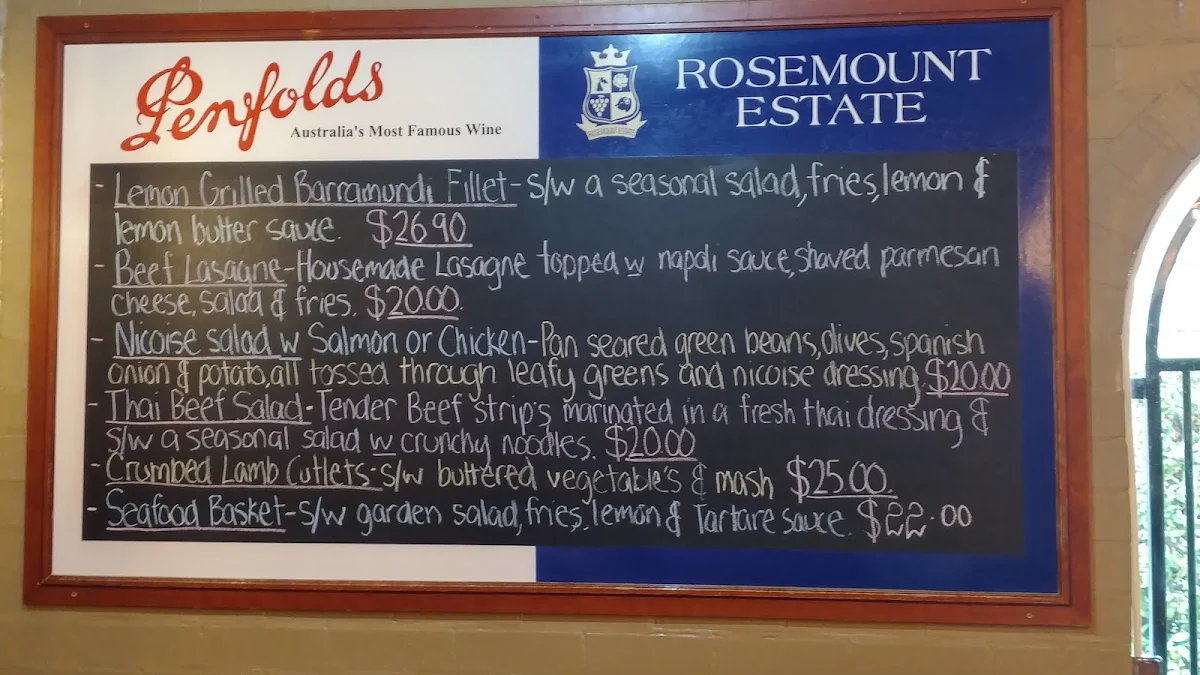 Penfolds
Australia's Most Famous Wine
ROSEMOUNT
ESTATE
ROSEMOUNT ESTATE
- Lemon Grilled Barramundi Fillet - s/w a seasonal salad, fries, lemon &
lemon butter sauce. $26.90
- Beef Lasagne - Housemade Lasagne topped w napoli sauce, shaved parmesan
cheese, salad & fries. $20.00.
- Nicoise salad w Salmon or Chicken - Pan seared green beans, olives, spanish
onion & potato, all tossed through leafy greens and nicoise dressing. $20.00
- Thai Beef Salad - Tender Beef strip's marinated in a fresh thai dressing &
s/w a seasonal salad w crunchy noodles. $20.00
- Crumbed Lamb Cutlets - s/w buttered vegetable's & mash $25.00.
- Seafood Basket - s/w garden salad, fries, lemon & Tartare sauce. $22.00